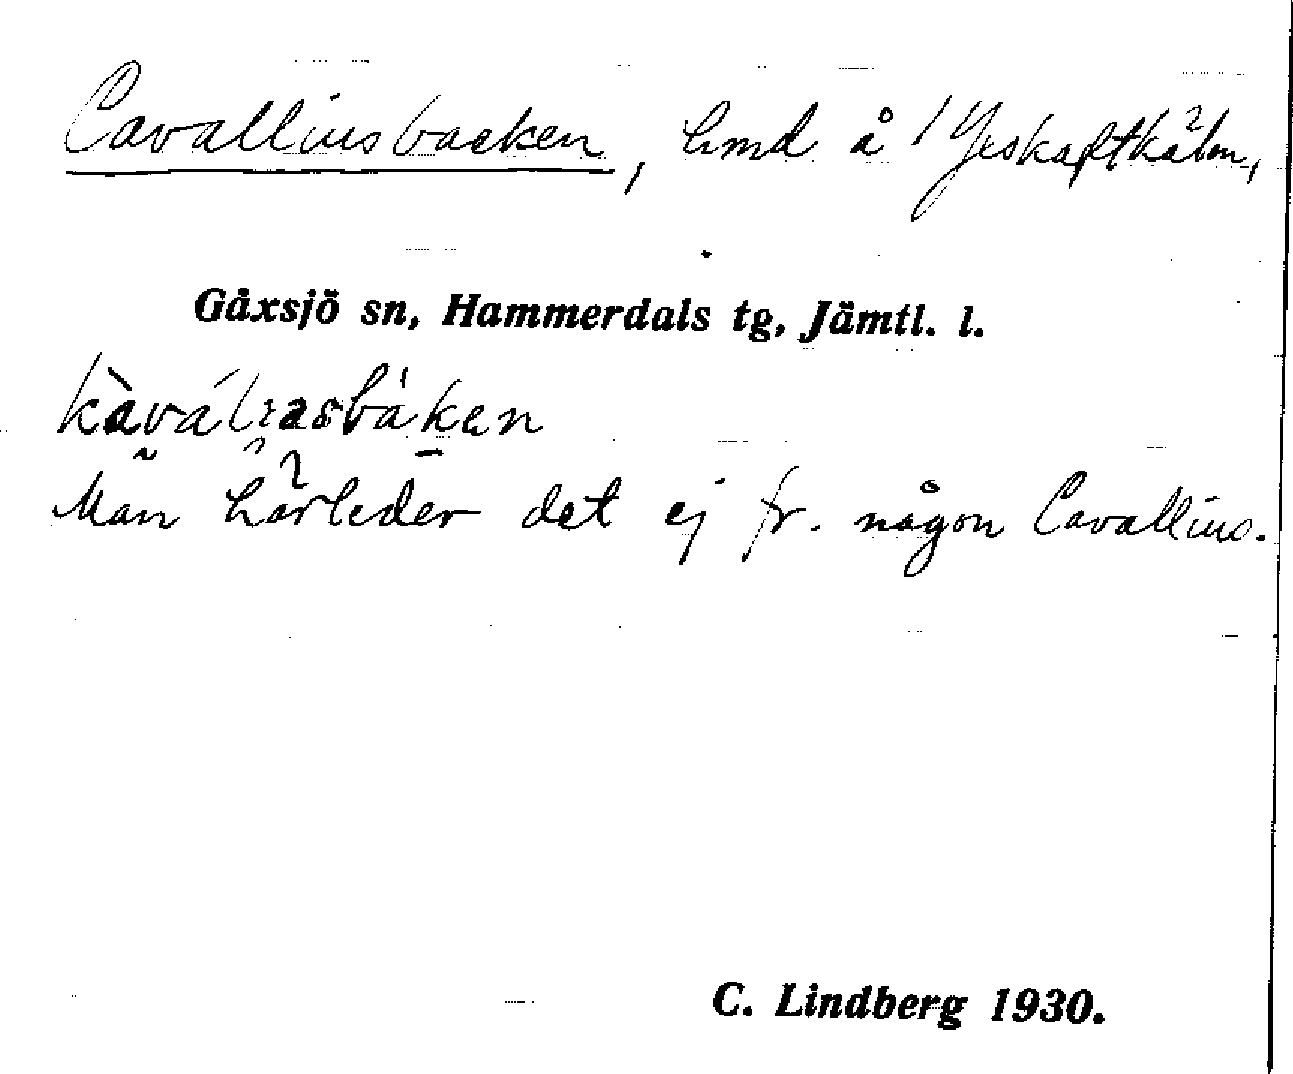 Cavalliusbacken, hmd å Yxskaftkälen,
Gåxsjö sn, Hammerdals tg, Jämtl. l.
Man härleder det ej fr. någon Cavallius.
C. Lindberg 1930.